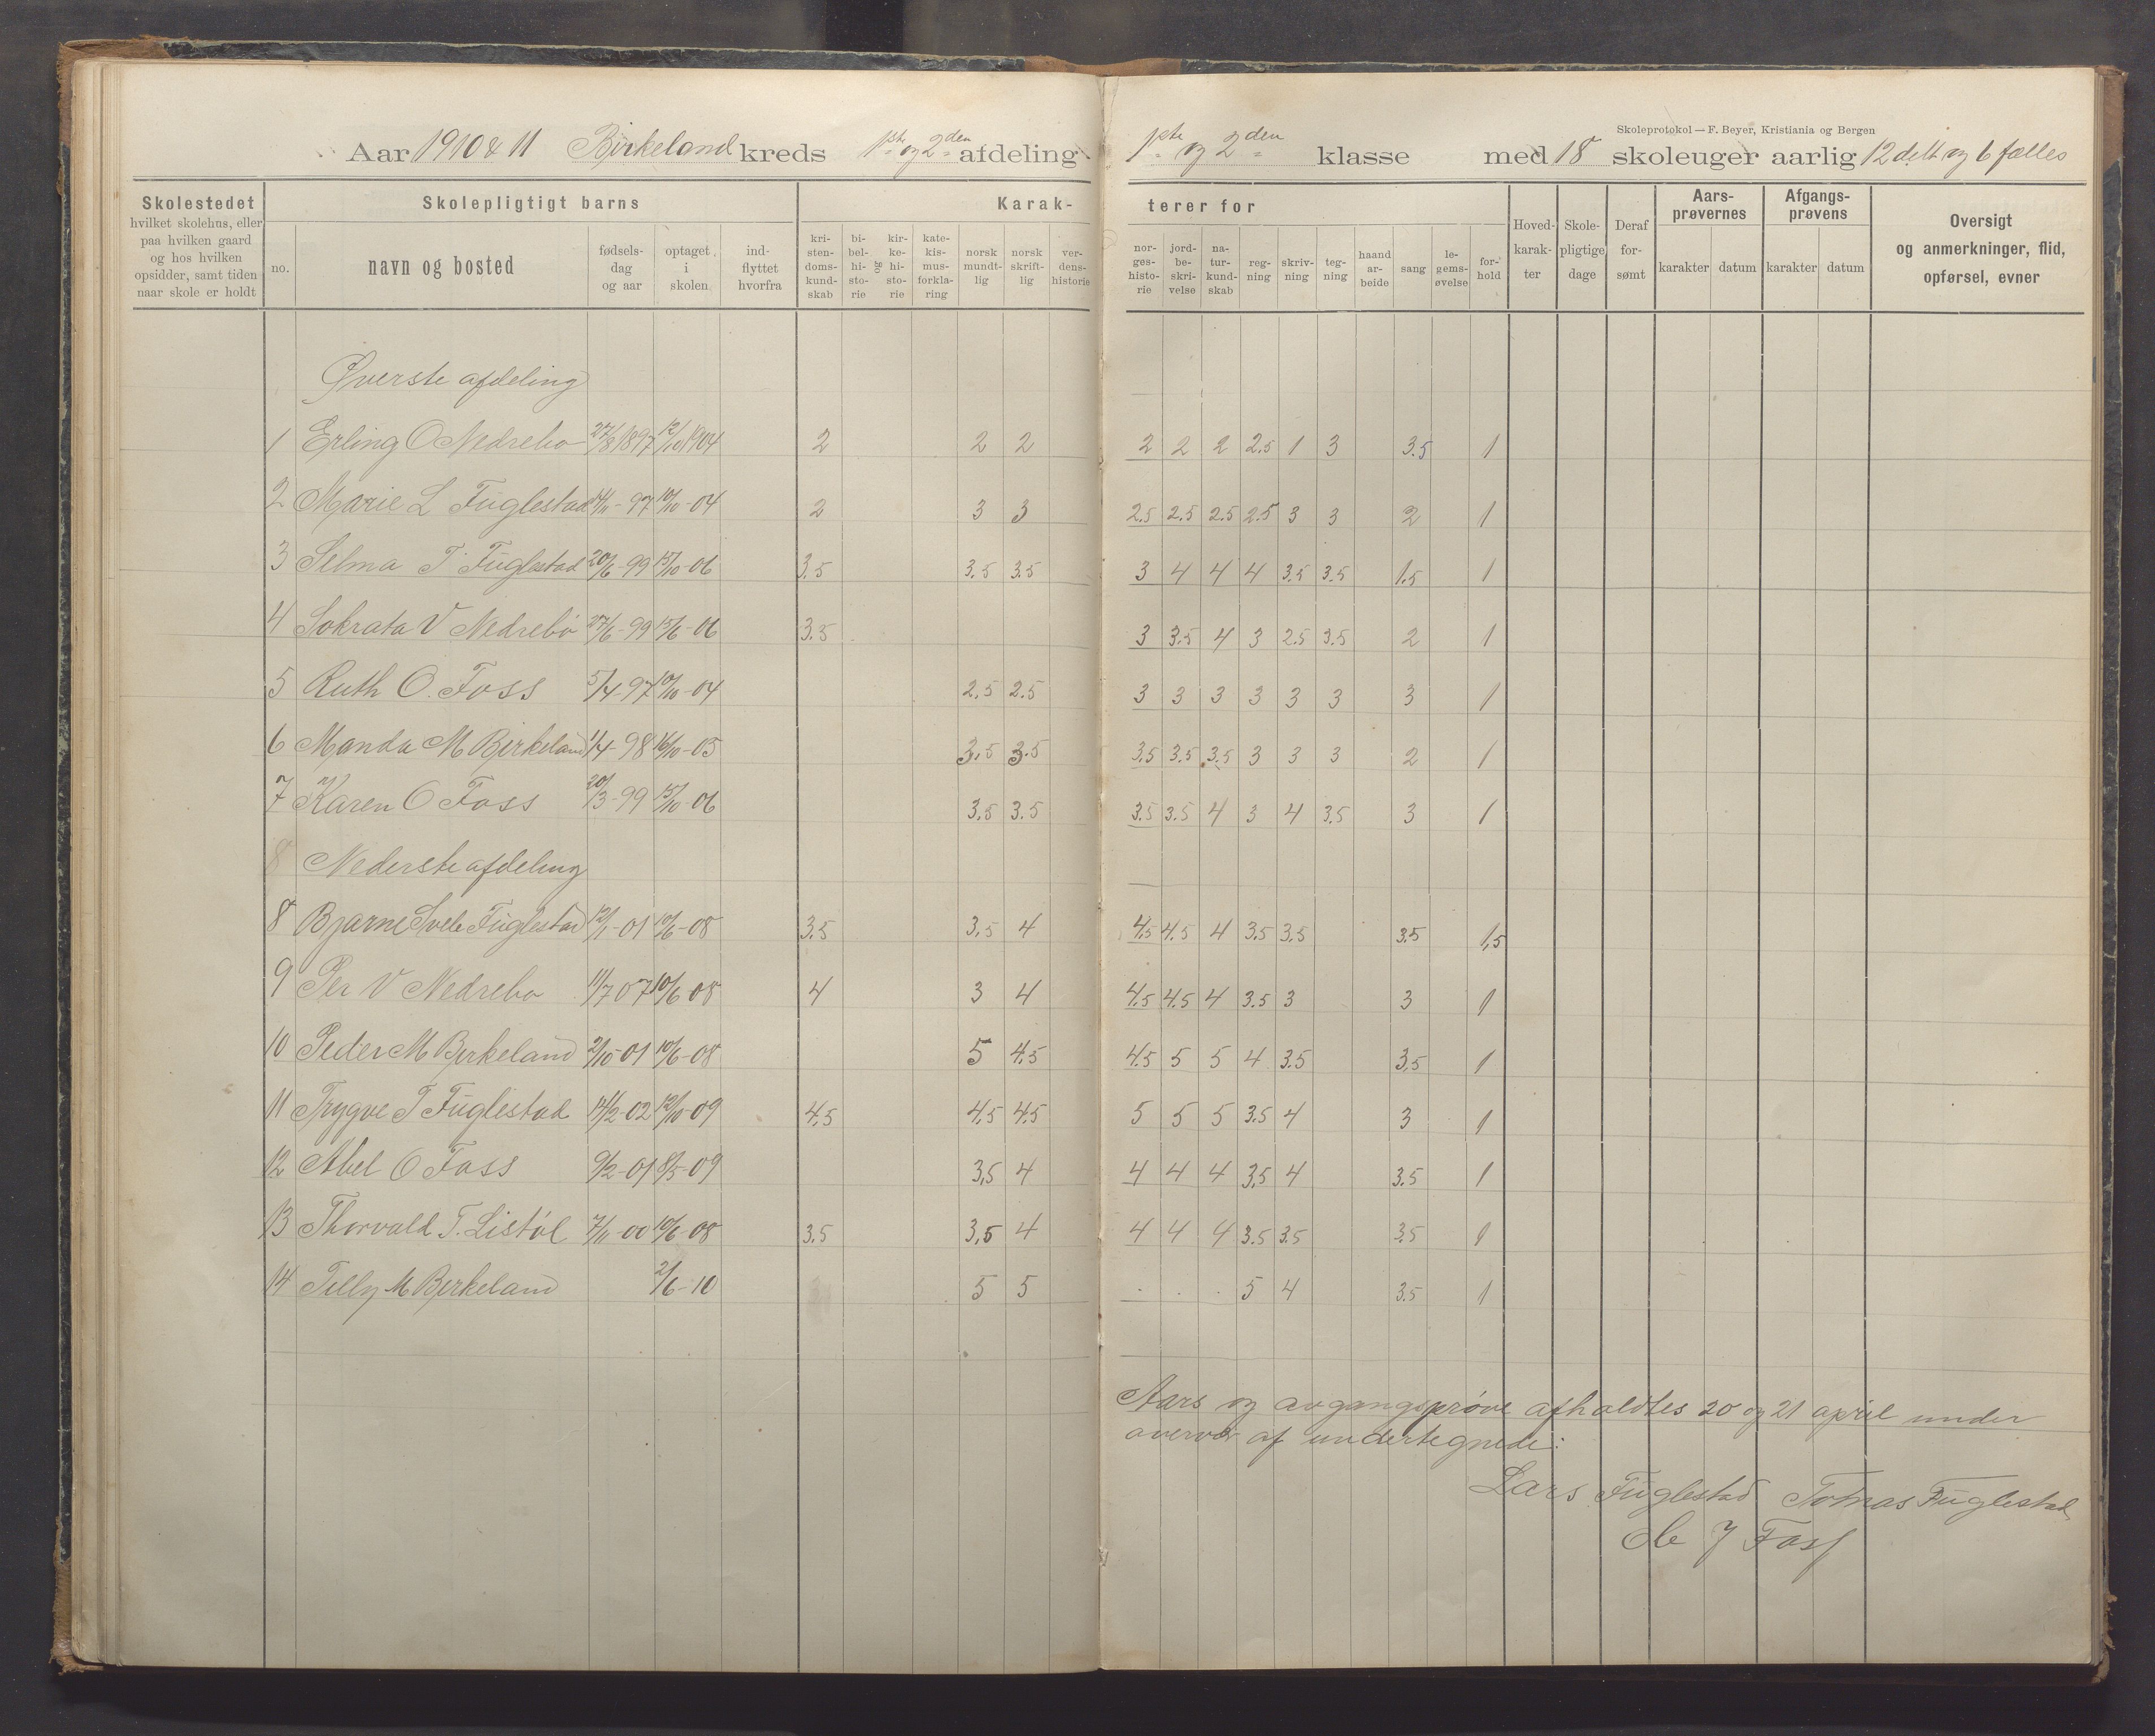 Skoleprotokol — F. Beyer, Kristiania og Bergen
Aar 1910 & 11 Birkeland kreds 1ste og 2den afdeling. 1ste og 2den klasse med 18 skoleuger aarlig 12 delt og 6 fælles
Skolestedet
hvilket skolehus, eller
paa hvilken gaard
og hos hvilken
opsidder, samt tiden
naar skole er holdt
Skolepligtigt barns
no.
navn og bosted
fødsels-
dag
og aar
optaget
i
skolen
ind-
flyttet
hvorfra
Karak-
kri-
sten-
doms-
kund-
skab
bi-
bel-
hi-
sto-
rie
og
kir-
ke-
hi-
sto-
rie
kate-
kis-
mus-
forkla-
ring
norsk
mundt-
lig
norsk
skrift-
lig
ver-
dens-
historie
terer for
nor-
ges-
histo-
rie
jord-
be-
skri-
velse
na-
tur-
kund-
skab
reg-
ning
skriv-
ning
teg-
ning
haand
ar-
beide
sang
le-
gems-
øvelse
for-
hold
Hoved-
karak-
ter
Skole-
pligtige
dage
Deraf
for-
sømt
Aars-
prøvernes
karakter datum
Afgangs-
prøvens
karakter datum
Oversigt
og anmerkninger, flid,
opførsel, evner
Øverste afdeling
1 Erling O Nedrebø 27/8 1897 12/10 1904 2 2 2 2 2 2 2.5 1 3 3.5 1
2 Marie L Fuglestad 14/11-97 10/10-04 2 3 3 2.5 2.5 2.5 2.5 3 3 2 1
3 Selma T Fuglestad 20/6-99 15/10-06 3.5 3.5 3.5 3 4 4 4 3.5 3.5 1.5 1
4 Sokrata V Nedrebø 27/6-99 15/6-06 3.5 3 3.5 4 3 2.5 3.5 2 1
5 Ruth O. Foss 5/4-97 10/10-04 2.5 2.5 3 3 3 3 3 3 3 1
6 Manda M Birkeland 1/4-98 16/10-05 3,5 3.5 3.5 3.5 3.5 3 3 3 2 1
7 Karen O Foss 20/3-99 15/10-06 3.5 3.5 3.5 3.5 4 3 4 3.5 3 1
8 Nederste afdeling
8 Bjarne Svele Fuglestad 12/1-01 10/6-08 3.5 3,5 4 4.5 4.5 4 3.5 3.5 3.5 1,5
9 Per V Nedrebø 11/7 07 10/6-08 4 3 4 4.5 4.5 4 3.5 3 3 1
10 Peder M Birkeland 2/10-01 10/6-08 5 4.5 4.5 5 5 4 3.5 3,5 1
11 Trygve T Fuglestad 14/2-02 12/10-09 4,5 4,5 4.5 5 5 5 3.5 4 3 1
12 Abel O Foss 9/2-01 8/5-09 3,5 4 4 4 4 3.5 4 3.5 1
13 Thorvald T. Listøl 7/11-00 10/6-08 3.5 3,5 4 4 4 4 3.5 3.5 3.5 1
14 Tilly M Birkeland 2/6-10 5 5 5 4 3.5 1
Aars og avgangsprøve afholdtes 20 og 21 april under
overvær af undertegnede:
Lars Fuglestad Tomas Fuglestad
Ole J Foss